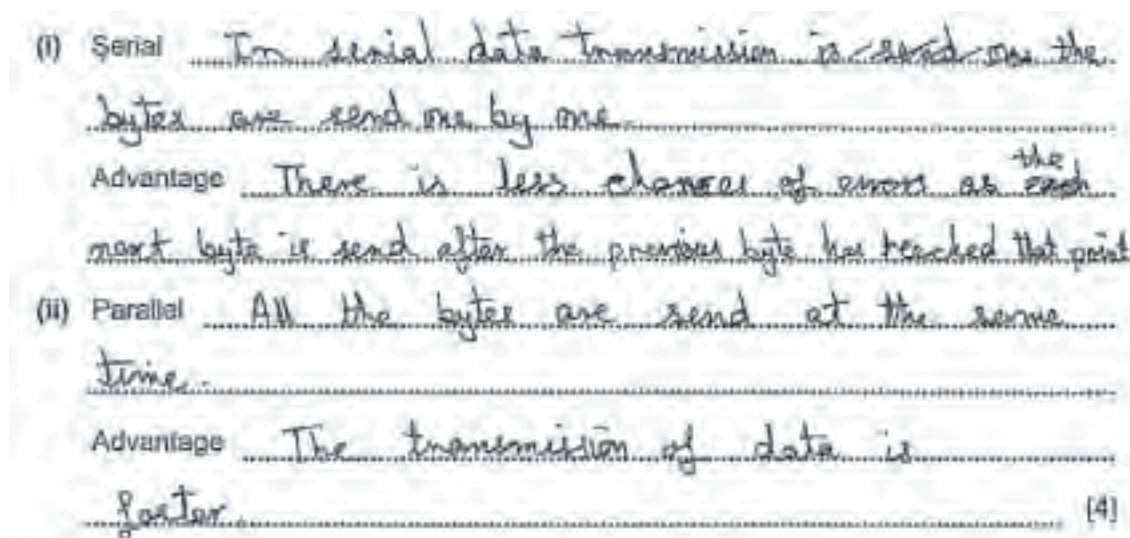 (i) Serial In serial data transmission is send one the
bytes are send one by one.
Advantage There is less chances of errors as the each
next byte is send after the previous byte has reached that point
(ii) Parallel All the bytes are send at the same
time.
Advantage The transmission of data is
faster. [4]